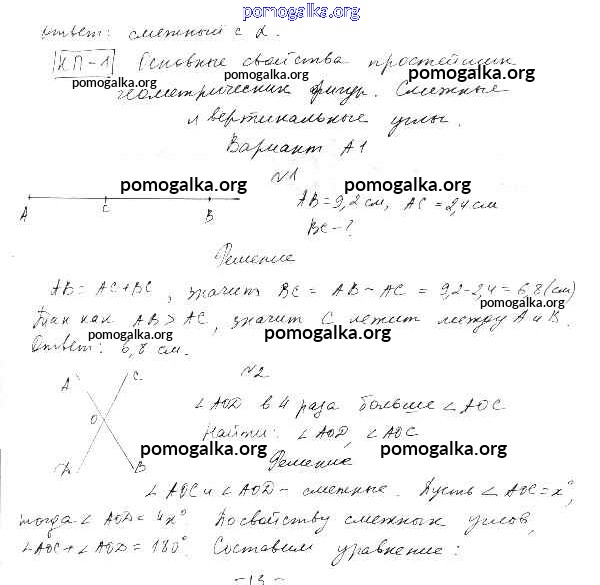 pomogalka.org
Ответ: смежный с α.
КП-1 Основные свойства простейших
pomogalka.org pomogalka.org
геометрических фигур. Смежные
и вертикальные углы.
Вариант А1
№1
pomogalka.org pomogalka.org
A C B AB = 9,2 см, AC = 2,4 см
BC - ?
Решение
AB = AC + BC, значит BC = AB - AC = 9,2 - 2,4 = 6,8 (см)
pomogalka.org
Так как AB > AC, значит C лежит между A и B.
pomogalka.org pomogalka.org
Ответ: 6,8 см.
№2
A C
∠AOD в 4 раза больше ∠AOC
O
Найти: ∠AOD, ∠AOC
pomogalka.org pomogalka.org
Решение
B
∠AOC и ∠AOD - смежные. Пусть ∠AOC = x°,
тогда ∠AOD = 4x°. По свойству смежных углов,
pomogalka.org pomogalka.org
∠AOC + ∠AOD = 180°. Составим уравнение:
- 13 -